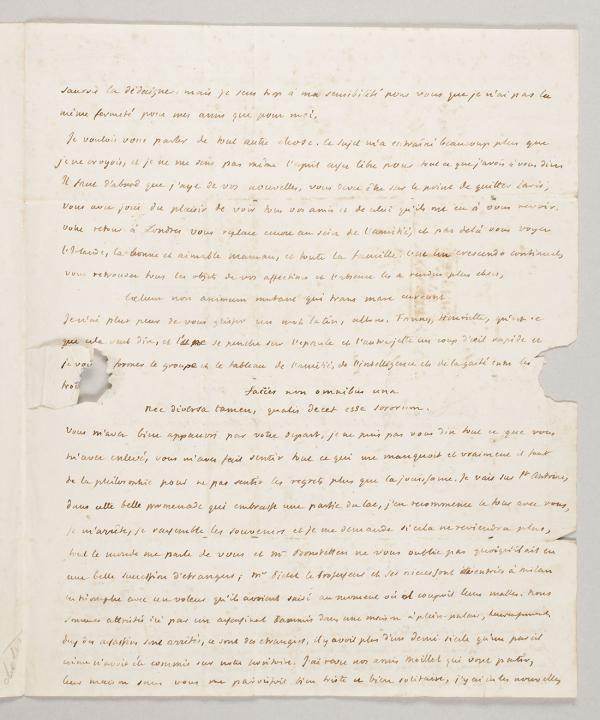 saurois la dédaigner mais je sens trop à ma sensibilité pour vous que je n'ai pas la
même fermeté pour mes amis que pour moi.
Je voulois vous parler de tout autre chose. le sujet m'a entrainé beaucoup plus que
je ne croyois, et je ne me sens pas même l'esprit assez libre pour tout ce que j'avois à vous dire
Il faut d'abord que j'aye de vos nouvelles, vous devez être sur le point de quitter Paris,
vous avez joui du plaisir de voir tous vos amis et de celui qu'ils ont eu à vous revoir.
votre retour à Londres vous replace encore au sein de l'amitié, et par delà vous voyez
l'Irlande, la bonne et aimable maman, et toute la famille. c'est un crescendo continuel,
vous retrouvez tous les objets de vos affections et l'absence les a rendus plus chers,
Cœlum non animum mutant qui trans mare currunt
Je n'ai plus peur de vous glisser un mot latin, allons. Fanny, Henriette, qu'est-ce
que cela veut dire, et l'une se penche sur l'épaule et l'autre jette un coup d'œil rapide et
je vois former le groupe et le tableau de l'amitié, de l'intelligence et de la gaité entre les
trois
facies non omnibus una
nec diversa tamen, qualis decet esse sororum.
Vous m'avez bien appauvri par votre départ, je ne puis pas vous dire tout ce que vous
m'avez enlevé, vous m'avez fait sentir tout ce qui me manquoit et vraiment il faut
de la philosophie pour ne pas sentir les regrets plus que la jouissance. Je vais sur St Antoine,
dans cette belle promenade qui embrasse une partie du lac, j'en recommence le tour avec vous,
je m'arrête, je rassemble les souvenirs et je me demande si cela ne reviendra plus,
tout le monde me parle de vous et Mr Bonstetten ne vous oublie pas quoiqu'il ait eu
une belle succession d'étrangers; Mr Pictet le Professeur et ses nieces sont rentrés à Milan
en triomphe avec un voleur qu'ils avoient saisi au moment où il coupoit leurs malles. nous
sommes attristés ici par un assassinat commis dans une maison à plein-palais, heureusement
les assassins sont arrêtés, ce sont des étrangers, il y avoit plus d'un demi siecle qu'un pareil
crime n'avoit été commis sur notre territoire. J'ai revu nos amis Moillet qui vont partir,
leur maison sans vous me paroissoit bien triste et bien solitaire, j'y ai lu les nouvelles